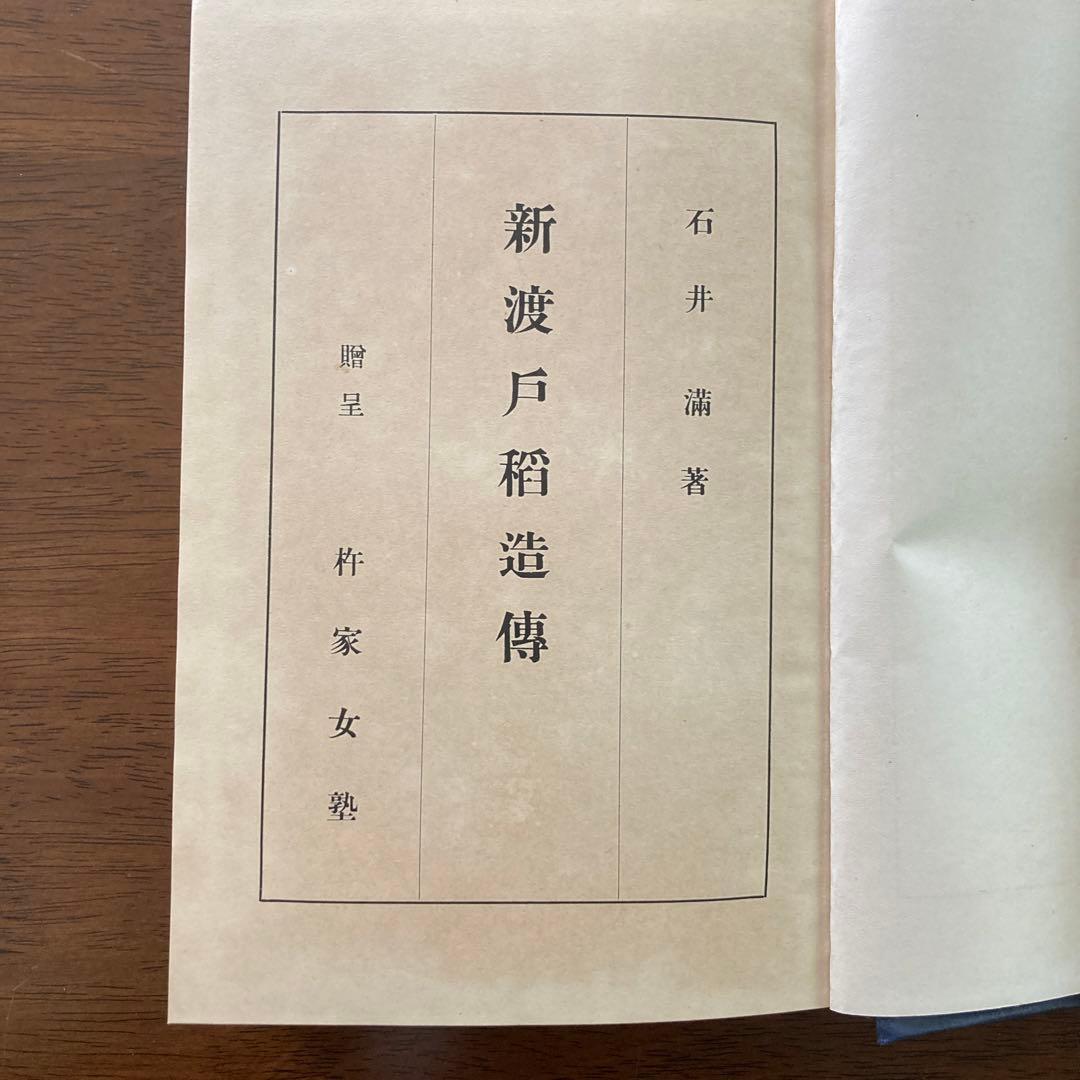 石井滿著
新渡戶稻造傳
贈呈 杵家女塾